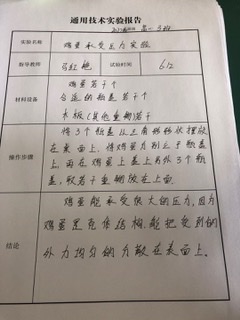 通用技术实验报告
高一3班
实验名称 鸡蛋承受压力实验
指导教师 试验时间 6/2
材料设备
鸡蛋若干个
合适的瓶盖若干个
木板(其他重物若干
操作步骤
将3个瓶盖以三角形形状摆放
在桌面上,将鸡蛋分别立于瓶盖
上,再在鸡蛋上盖上另外3个瓶
盖,取若干重物放在上面.
结论
鸡蛋能承受很大的压力,因为
鸡蛋是壳体结构,能把受到的
外力均匀的分散在表面上.